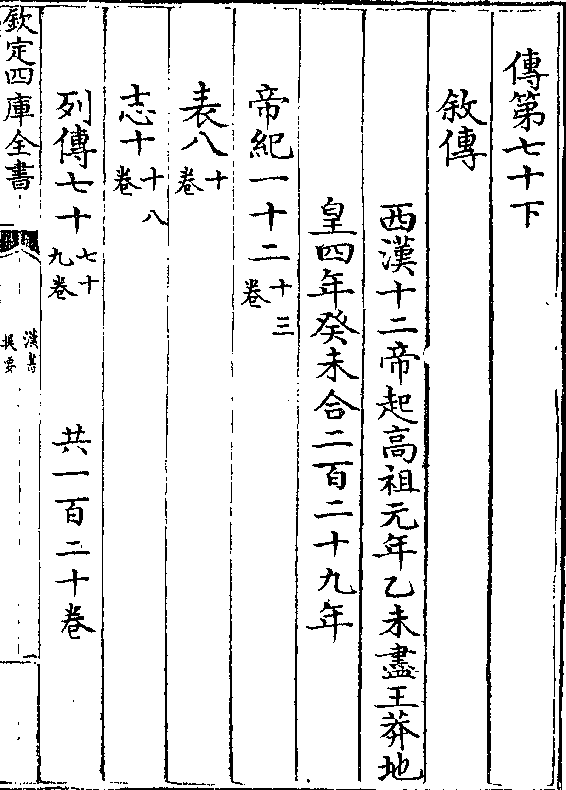 傳第七十下
敘傳
西漢十二帝起高祖元年乙未盡王莽地
皇四年癸未合二百二十九年
帝紀一十二十三卷
表八十卷
志十十八卷
列傳七十七十九卷 共一百二十卷
欽定四庫全書
漢書
提要